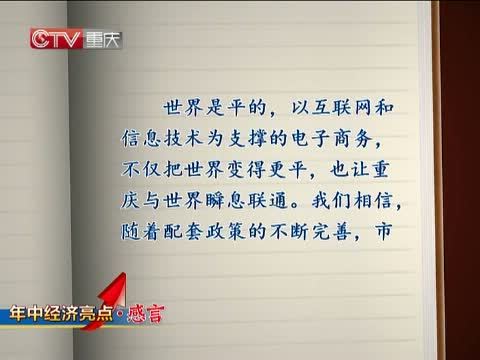 CTV重庆
世界是平的，以互联网和
信息技术为支撑的电子商务，
不仅把世界变得更平，也让重
庆与世界瞬息联通。我们相信，
随着配套政策的不断完善，市
年中经济亮点·感言